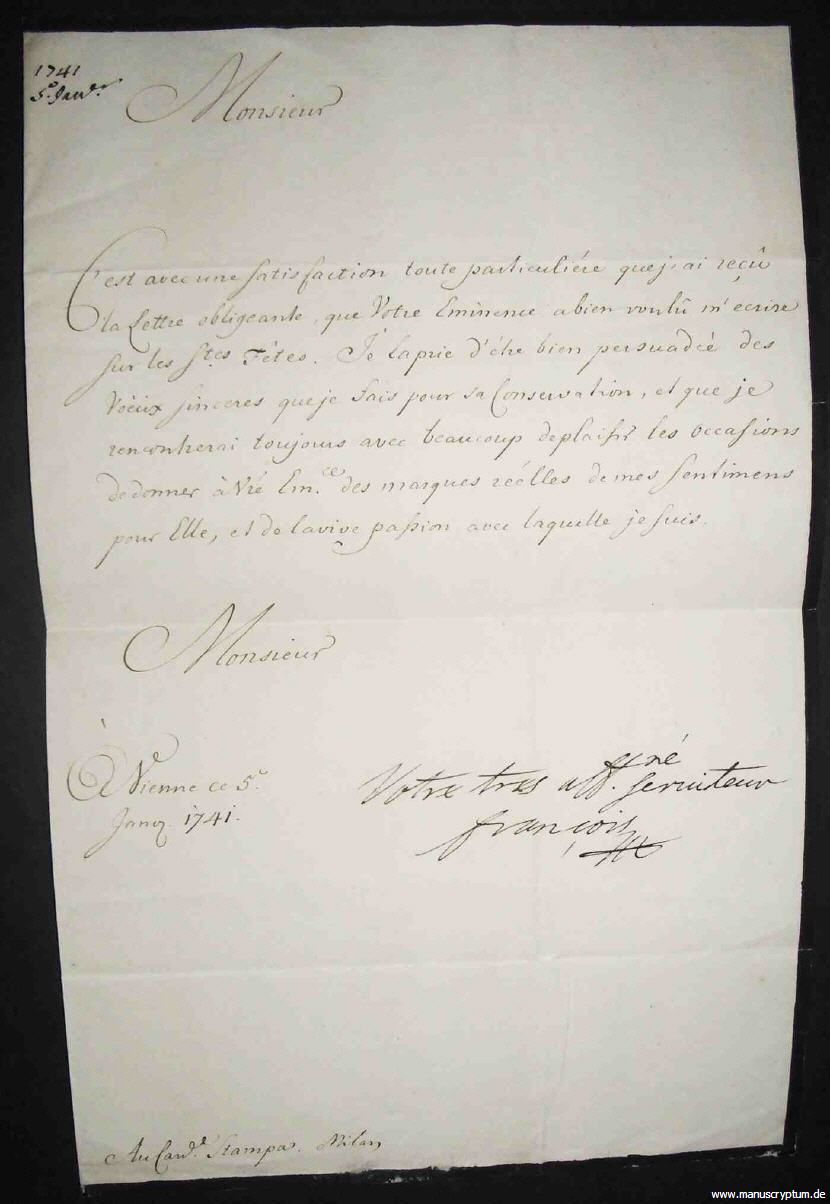 1741
5e Janvr
Monsieur
C'est avec une satisfaction toute particuliére que j'ai reçû
la Lettre obligeante, que Votre Eminence a bien voulû m'ecrire
sur les Stes Fêtes. Je la prie d'étre bien persuadée des
Voëux sinceres que je fais pour sa Conservation, et que je
rencontrerai toujours avec beaucoup de plaisir les occasions
de donner à Vre Em.ce des marques réelles de mes sentimens
pour Elle, et de la vive passion avec laquelle je suis.
Monsieur
à Vienne ce 5e
Janvr 1741.
Votre tres aff.nné serviteur
françois
Au Card.l Stampa. Milan
www.manuscryptum.de